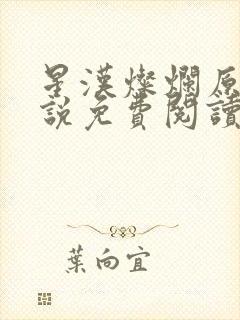 星漢燦爛原
說免費閱讀
葉向宜